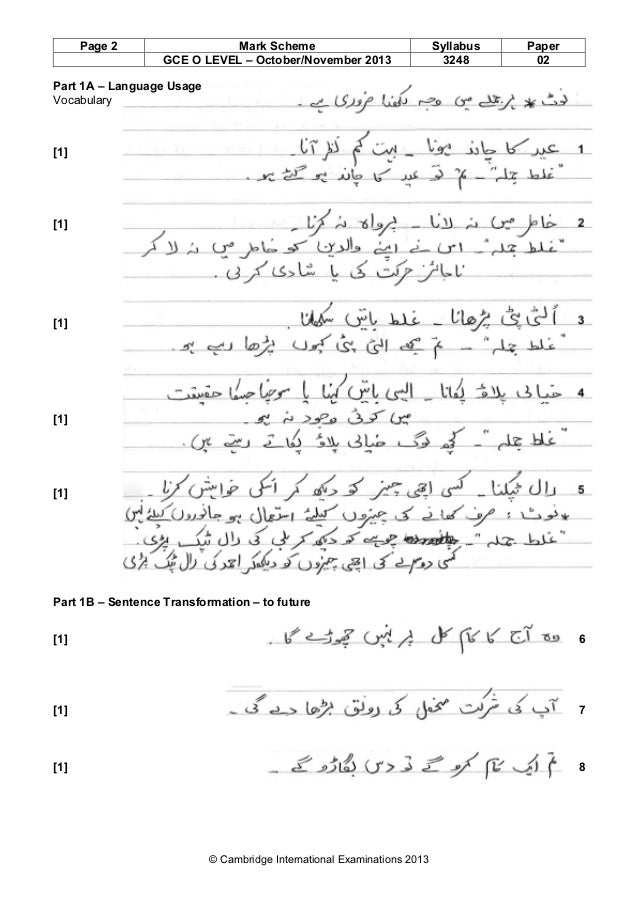 Page 2 Mark Scheme Syllabus Paper
GCE O LEVEL – October/November 2013 3248 02
Part 1A – Language Usage
Vocabulary نوٹ * ہر جملے میں وجہ لکھنا ضروری ہے ۔
[1] عید کا چاند ہونا ۔ بہت کم نظر آنا۔ 1
"غلط جملہ"۔ تم تو عید کا چاند ہو گئے ہو۔
[1] خاطر میں نہ لانا ۔ پرواہ نہ کرنا ۔ 2
"غلط جملہ"۔ اس نے اپنے والدین کو خاطر میں نہ لا کر
ناجائز حرکت کی یا شادی کر لی ۔
[1] اُلٹی پٹی پڑھانا ۔ غلط باتیں سکھانا۔ 3
"غلط جملہ"۔ تم مجھے الٹی پٹی کیوں پڑھا رہے ہو۔
خیالی پلاؤ پکانا ۔ ایسی باتیں کہنا یا سوچنا جسکا حقیقت 4
[1] میں کوئی وجود نہ ہو۔
"غلط جملہ"۔ کچھ لوگ خیالی پلاؤ پکاتے رہتے ہیں۔
[1] رال ٹپکنا ۔ کسی اچھی چیز کو دیکھ کر اسکی خواہش کرنا ۔ 5
*نوٹ : صرف کھانے کی چیزوں کیلئے استعمال ہو جانوروں کیلئے نہیں
"غلط جملہ"۔ چوہے کو دیکھ کر بلی کی رال ٹپک پڑی۔
کسی دوسرے کی اچھی چیزوں کو دیکھکر احمد کی رال ٹپک پڑی
Part 1B – Sentence Transformation – to future
[1] وہ آج کا کام کل پر نہیں چھوڑے گا ۔ 6
[1] آپ کی شرکت محفل کی رونق بڑھا دے گی ۔ 7
[1] تم ایک کام کرو گے تو دس بگاڑو گے ۔ 8
© Cambridge International Examinations 2013